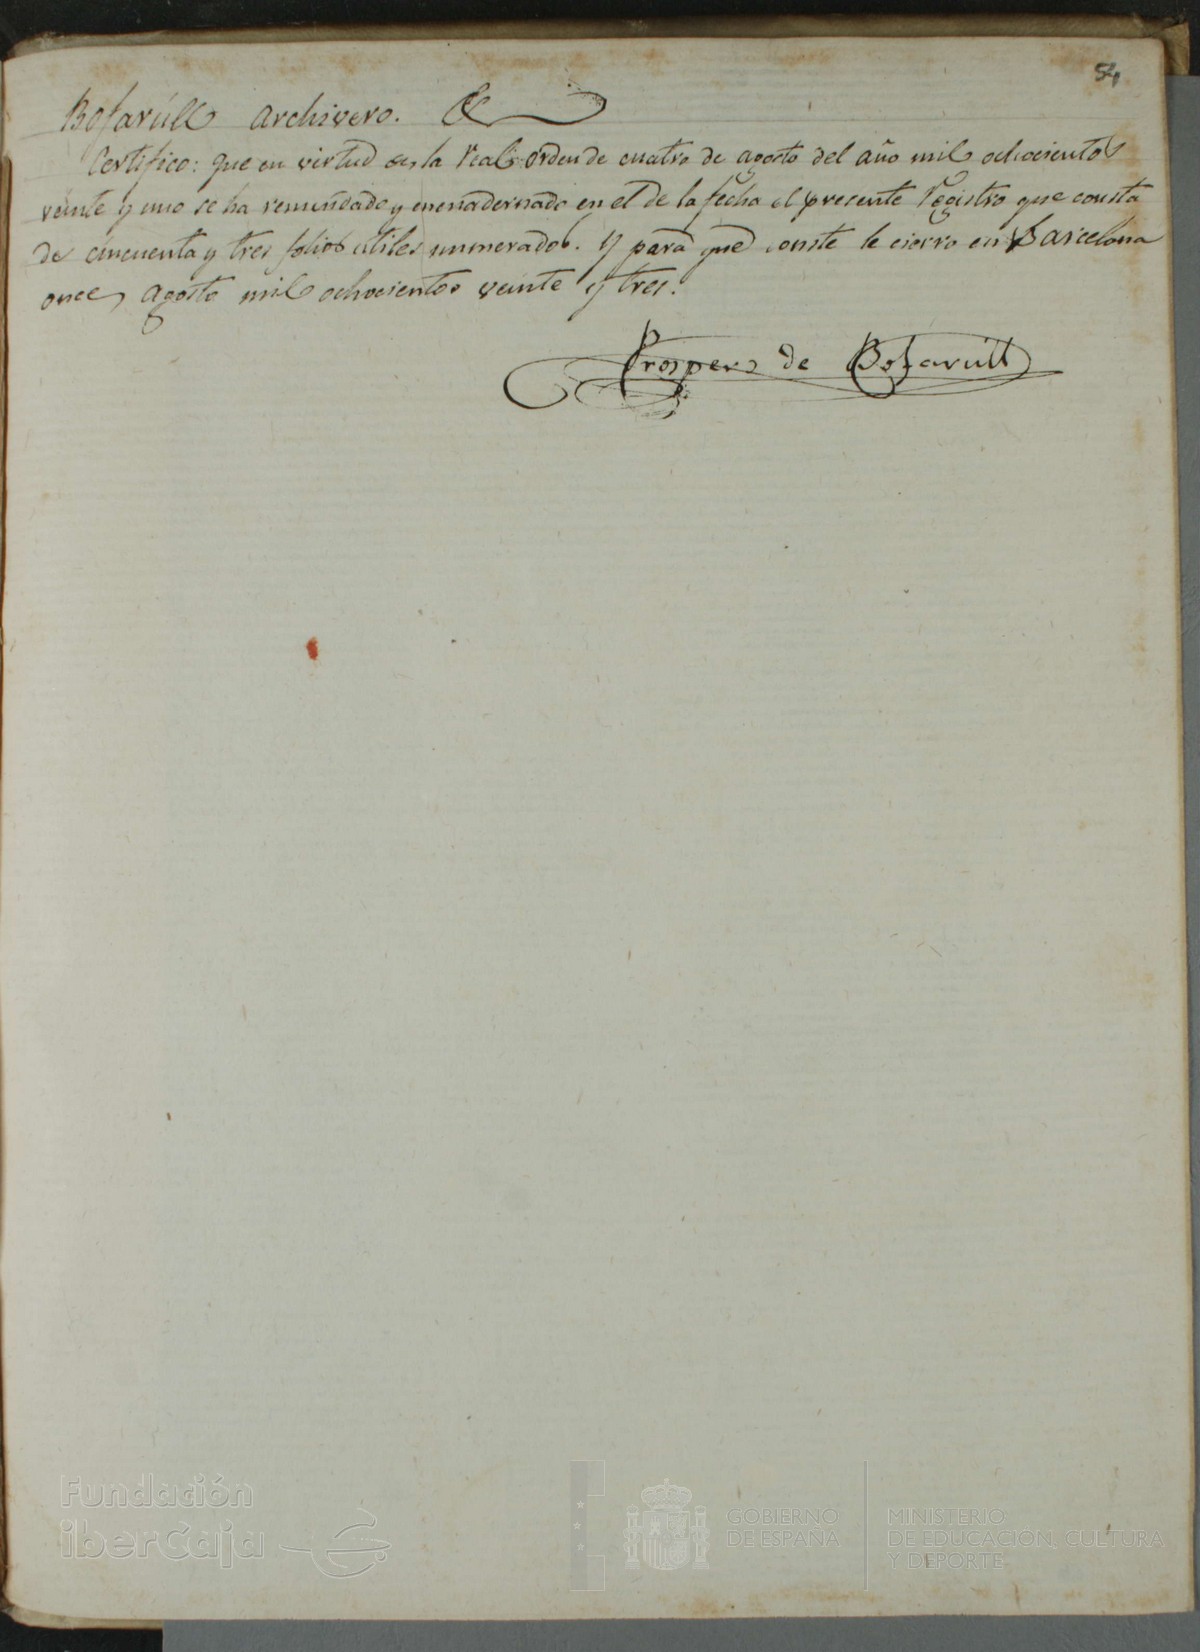 54
Bofarúll Archivero. &c
Certifico: que en virtud de la Real orden de cuatro de agosto del año mil ochocientos
veinte y uno se ha remendado y encuadernado en el de la fecha el presente Registro que consta
de cincuenta y tres folios útiles numerados. Y para que conste le cierro en Barcelona
once agosto mil ochocientos veinte y tres.
Prospero de Bofarúll
Fundación
iberCaja
GOBIERNO
DE ESPAÑA
MINISTERIO
DE EDUCACIÓN, CULTURA
Y DEPORTE